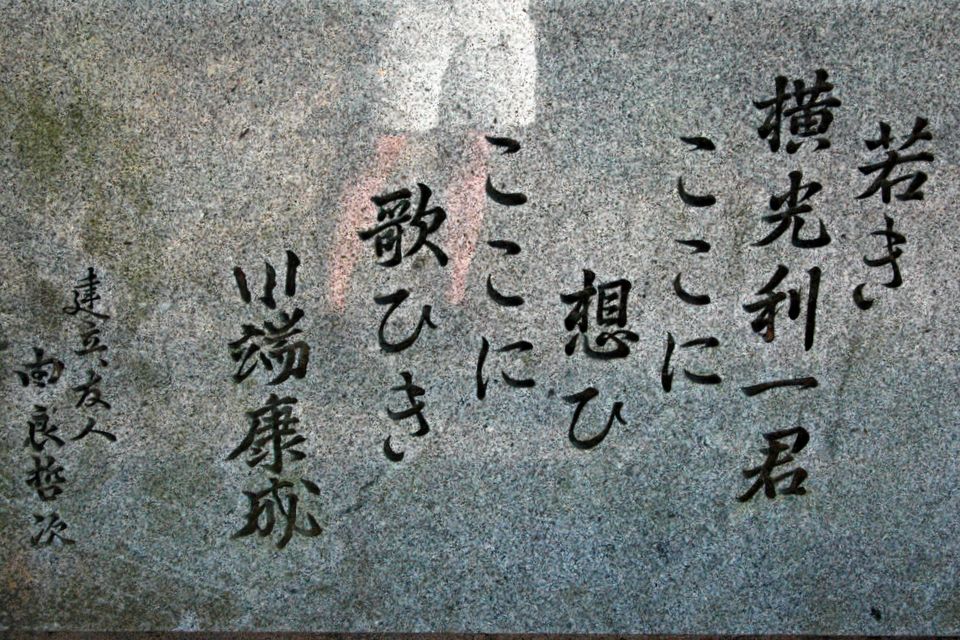 若き
横光利一君
ここに
想ひ
ここに
歌ひき
川端康成
建立 友人
由良哲次